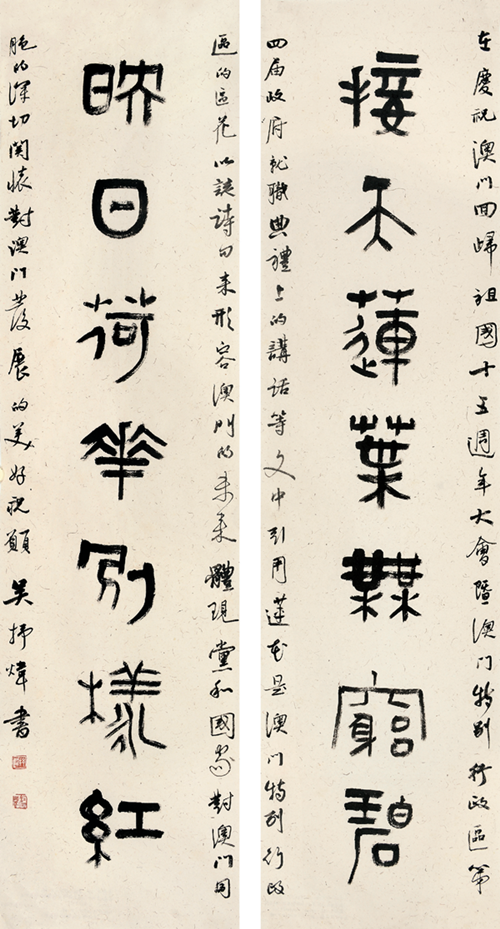 在慶祝澳门回歸祖國十五週年大會暨澳门特别行政區第
接天蓮葉無窮碧
四届政府就職典禮上的講话等文中引用蓮花是澳门特别行政
區的區花以该詩句来形容澳门的未来體現黨和國家對澳门同
映日荷華別樣紅
胞的深切関懷對澳门發展的美好祝願 吴抒煒書